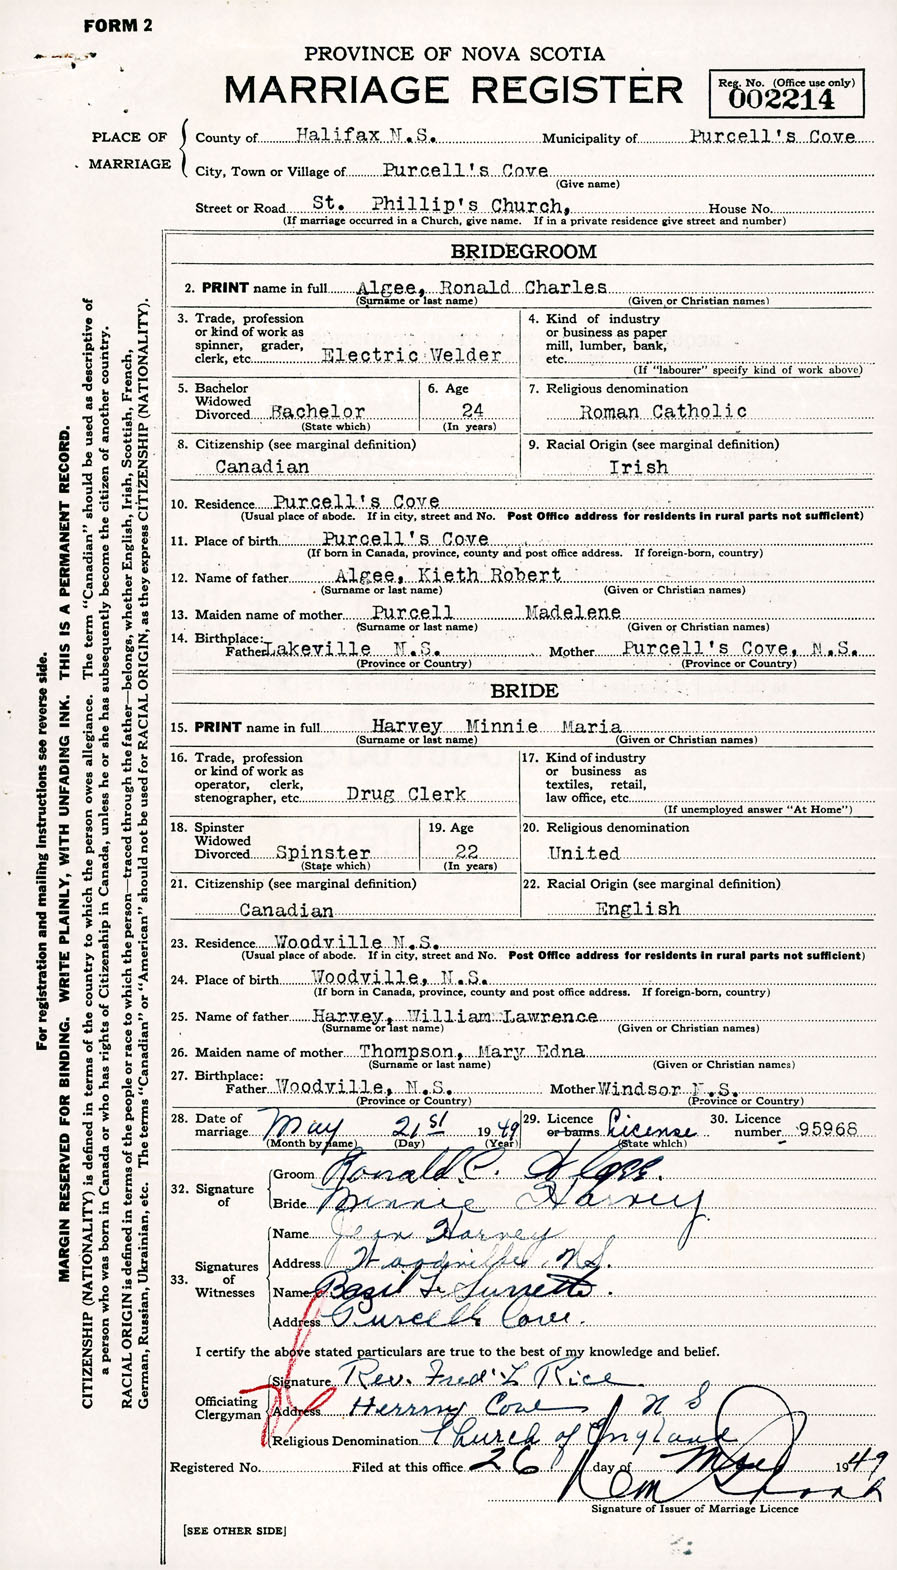 FORM 2
PROVINCE OF NOVA SCOTIA
MARRIAGE REGISTER
Reg. No. (Office use only)
002214
PLACE OF MARRIAGE
County of Halifax N.S. Municipality of Purcell's Cove
City, Town or Village of Purcell's Cove
(Give name)
Street or Road St. Phillip's Church, House No.
(If marriage occurred in a Church, give name. If in a private residence give street and number)
BRIDEGROOM
2. PRINT name in full Algee, Ronald Charles
(Surname or last name) (Given or Christian names)
3. Trade, profession or kind of work as spinner, grader, clerk, etc. Electric Welder
4. Kind of industry or business as paper mill, lumber, bank, etc.
(If "labourer" specify kind of work above)
5. Bachelor Widowed Divorced Bachelor
(State which)
6. Age 24
(In years)
7. Religious denomination
Roman Catholic
8. Citizenship (see marginal definition)
Canadian
9. Racial Origin (see marginal definition)
Irish
10. Residence Purcell's Cove
(Usual place of abode. If in city, street and No. Post Office address for residents in rural parts not sufficient)
11. Place of birth Purcell's Cove
(If born in Canada, province, county and post office address. If foreign-born, country)
12. Name of father Algee, Kieth Robert
(Surname or last name) (Given or Christian names)
13. Maiden name of mother Purcell Madelene
(Surname or last name) (Given or Christian names)
14. Birthplace:
Father Lakeville N.S. Mother Purcell's Cove, N.S.
(Province or Country) (Province or Country)
BRIDE
15. PRINT name in full Harvey Minnie Maria
(Surname or last name) (Given or Christian names)
16. Trade, profession or kind of work as operator, clerk, stenographer, etc. Drug Clerk
17. Kind of industry or business as textiles, retail, law office, etc.
(If unemployed answer "At Home")
18. Spinster Widowed Divorced Spinster
(State which)
19. Age 22
(In years)
20. Religious denomination
United
21. Citizenship (see marginal definition)
Canadian
22. Racial Origin (see marginal definition)
English
23. Residence Woodville N.S.
(Usual place of abode. If in city, street and No. Post Office address for residents in rural parts not sufficient)
24. Place of birth Woodville, N.S.
(If born in Canada, province, county and post office address. If foreign-born, country)
25. Name of father Harvey, William Lawrence
(Surname or last name) (Given or Christian names)
26. Maiden name of mother Thompson, Mary Edna
(Surname or last name) (Given or Christian names)
27. Birthplace:
Father Woodville, N.S. Mother Windsor N.S.
(Province or Country) (Province or Country)
28. Date of marriage May 21st 1949
(Month by name) (Day) (Year)
29. Licence or banns License
(State which)
30. Licence number 95968
32. Signature of
Groom Ronald C. Algee.
Bride Minnie Harvey
33. Signatures of Witnesses
Name Jean Harvey
Address Woodville N.S.
Name Basil F. Surrette.
Address Purcells Cove.
I certify the above stated particulars are true to the best of my knowledge and belief.
Officiating Clergyman
Signature Rev. Fred L Rice
Address Herring Cove N S
Religious Denomination Church of England
Registered No. Filed at this office 26 day of 1949
Signature of Issuer of Marriage Licence
[SEE OTHER SIDE]
For registration and mailing instructions see reverse side.
MARGIN RESERVED FOR BINDING. WRITE PLAINLY, WITH UNFADING INK. THIS IS A PERMANENT RECORD.
CITIZENSHIP (NATIONALITY) is defined in terms of the country to which the person owes allegiance. The term "Canadian" should be used as descriptive of
a person who was born in Canada or who has rights of Citizenship in Canada, unless he or she has subsequently become the citizen of another country.
RACIAL ORIGIN is defined in terms of the people or race to which the person—traced through the father—belongs, whether English, Irish, Scottish, French,
German, Russian, Ukrainian, etc. The terms "Canadian" or "American" should not be used for RACIAL ORIGIN, as they express CITIZENSHIP (NATIONALITY).